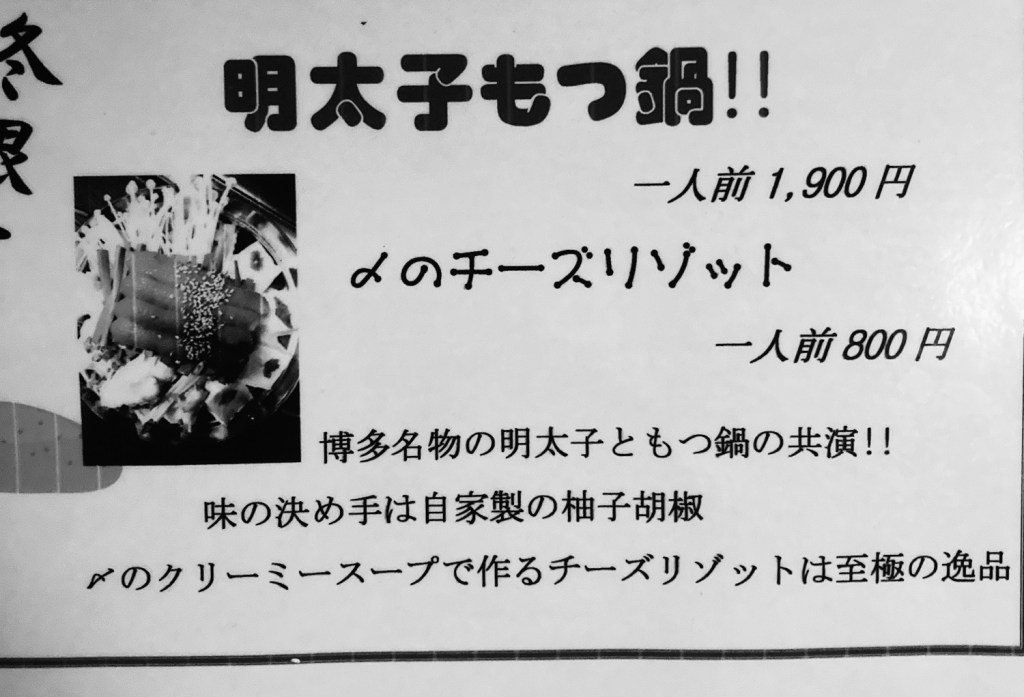 冬限
明太子もつ鍋!!
一人前 1,900 円
〆のチーズリゾット
一人前 800 円
博多名物の明太子ともつ鍋の共演!!
味の決め手は自家製の柚子胡椒
〆のクリーミースープで作るチーズリゾットは至極の逸品